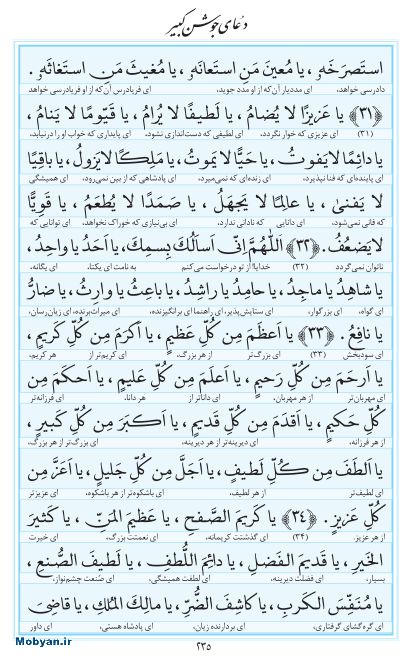 دعای جوشن کبیر
استَصرَخَهُ ، یا مُعینَ مَنِ استَعانَهُ ، یا مُغیثَ مَنِ استَغاثَهُ .
دادرسی خواهد، ای مددیار آن‌که از او مدد جوید، ای فریادرس آن که از او فریادرسی خواهد
﴿۳۱﴾ یا عَزیزًا لا یُضامُ ، یا لَطیفًا لا یُرامُ ، یا قَیّومًا لا یَنامُ ،
(۳۱) ای عزیزی که خوار نگردد، ای لطیفی که دست‌اندازی نشود، ای پایداری که خواب او را درنیابد،
یا دائِمًا لا یَفوتُ ، یا حَیًّا لا یَموتُ ، یا مَلِکًا لا یَزولُ ، یا باقِیًا
ای پاینده‌ای که فنا نپذیرد، ای زنده‌ای که نمی‌میرد، ای پادشاهی که از بین نمی‌رود، ای همیشگی
لا یَفنیٰ ، یا عالِمًا لا یَجهَلُ ، یا صَمَدًا لا یُطعَمُ ، یا قَویًّا
که فانی نمی‌شود، ای دانایی که نادانی ندارد، ای بی‌نیازی که خوراک نخواهد، ای توانایی که
لا یَضعُفُ . ﴿۳۲﴾ اَللّٰهُمَّ اِنّی اَسأَلُکَ بِسمِکَ ، یا اَحَدُ یا واحِدُ ،
ناتوان نمی‌گردد (۳۲) خدایا! از تو درخواست می‌کنم به نامت ای یکتا، ای یگانه،
یا شاهِدُ یا ماجِدُ ، یا حامِدُ یا راشِدُ ، یا باعِثُ یا وارِثُ ، یا ضارُّ
ای گواه، ای بزرگوار، ای ستایش‌پذیر، ای راهنما ای برانگیزنده، ای میراث‌برنده، ای زیان‌رسان،
یا نافِعُ . ﴿۳۳﴾ یا اَعظَمَ مِن کُلِّ عَظیمٍ ، یا اَکرَمَ مِن کُلِّ کَریمٍ ،
ای سودبخش (۳۳) ای بزرگ‌تر از هر بزرگ، ای کریم‌تر از هر کریم،
یا اَرحَمَ مِن کُلِّ رَحیمٍ ، یا اَعلَمَ مِن کُلِّ عَلیمٍ ، یا اَحکَمَ مِن
ای مهربان‌تر از هر مهربان، ای داناتر از هر دانا، ای فرزانه‌تر
کُلِّ حَکیمٍ ، یا اَقدَمَ مِن کُلِّ قَدیمٍ ، یا اَکبَرَ مِن کُلِّ کَبیرٍ ،
از هر فرزانه، ای دیرینه‌تر از هر دیرینه، ای بزرگ‌تر از هر بزرگ،
یا اَلطَفَ مِن کُلِّ لَطیفٍ ، یا اَجَلَّ مِن کُلِّ جَلیلٍ ، یا اَعَزَّ مِن
ای لطیف‌تر از هر لطیف، ای باشکوه‌تر از هر باشکوه، ای عزیزتر
کُلِّ عَزیزٍ . ﴿۳۴﴾ یا کَریمَ الصَّفحِ ، یا عَظیمَ المَنِّ ، یا کَثیرَ
از هر عزیز. (۳۴) ای گذشتت کریمانه، ای نعمتت بزرگ، ای خیرت
الخَیرِ ، یا قَدیمَ الفَضلِ ، یا دائِمَ اللُّطفِ ، یا لَطیفَ الصُّنعِ ،
بسیار، ای فضلت دیرینه، ای لطفت همیشگی، ای صنعت چشم‌نواز،
یا مُنَفِّسَ الکَربِ ، یا کاشِفَ الضُّرِّ ، یا مالِکَ المُلکِ ، یا قاضِیَ
ای گره‌گشای گرفتاری، ای بردارنده زیان، ای پادشاه هستی، ای داور
۲۳۵
Mobyan.ir